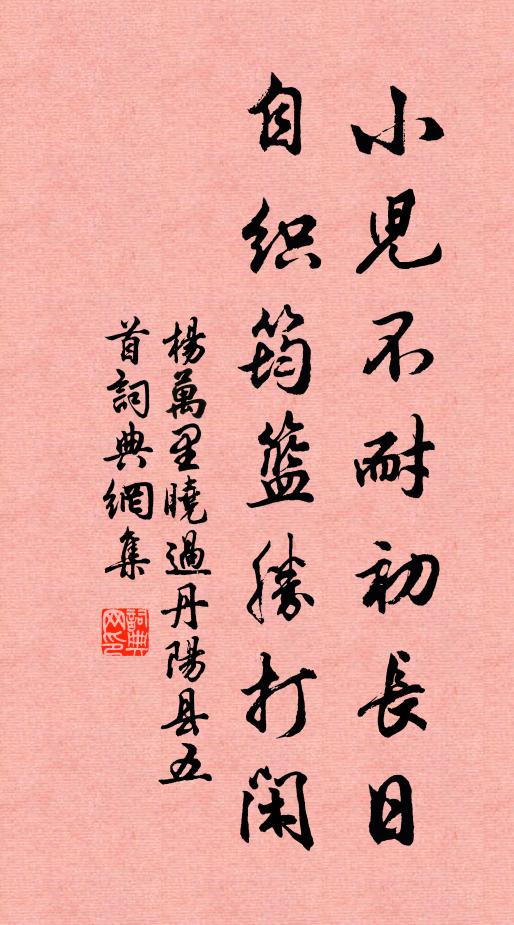 小兒不耐初長日
自织筠籃勝打闲
楊萬里曉過丹陽县五
首詞典網集
詞典
网印